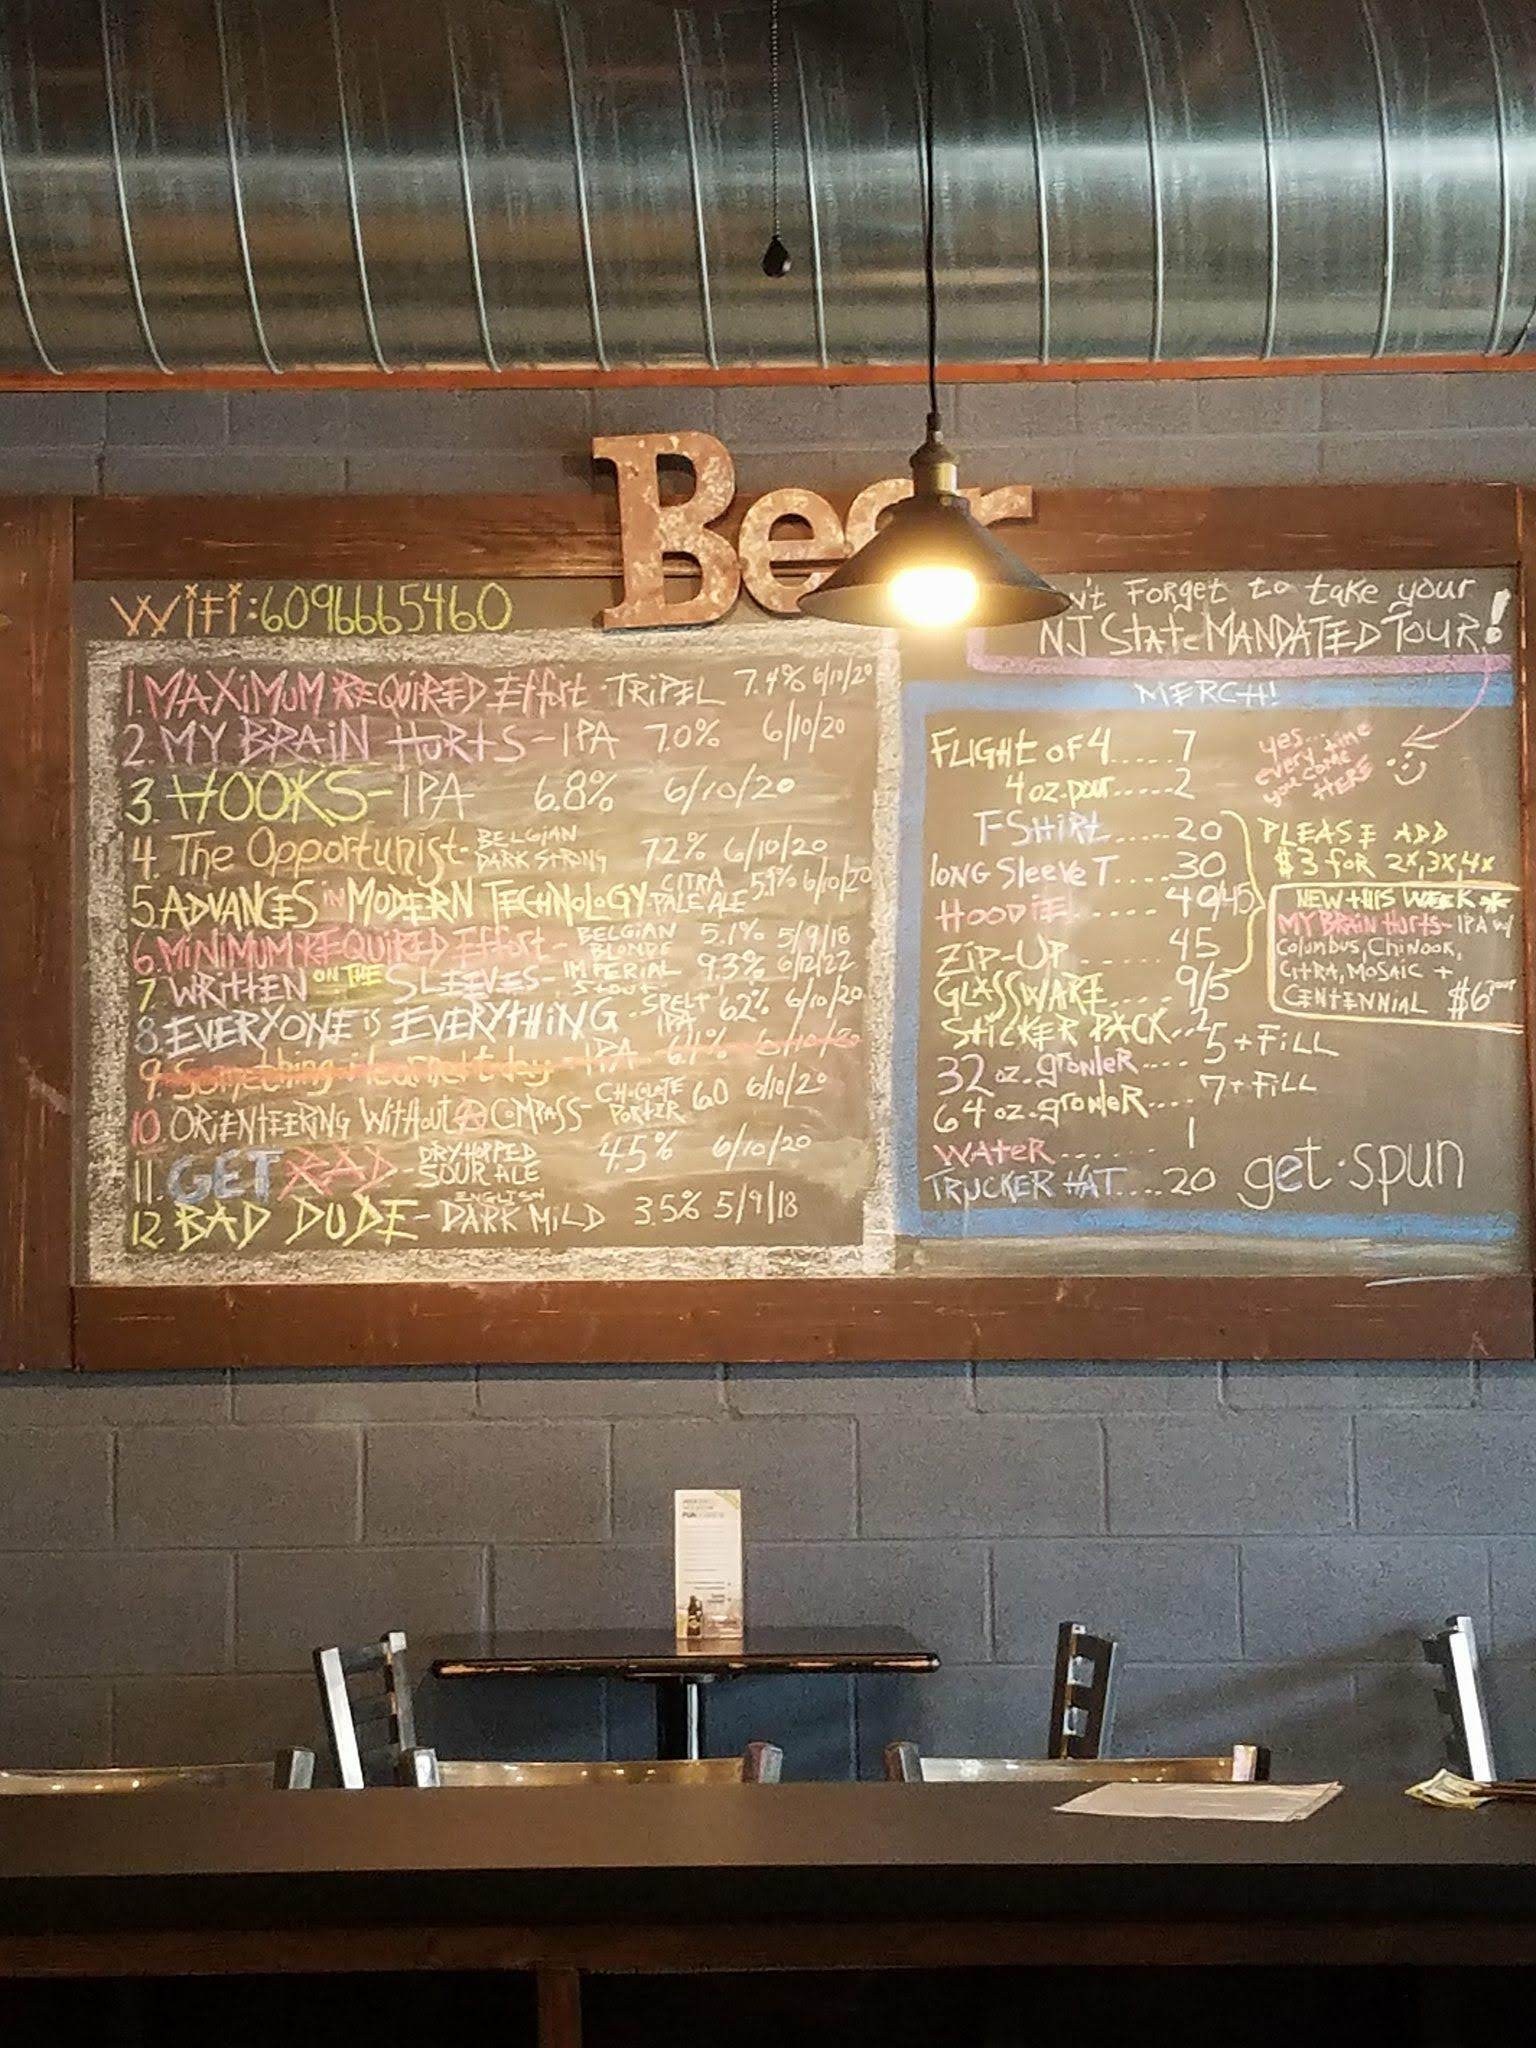 Beer
WiFi:6096665460
1. MAXIMUM REQUIRED Effort - TRIPEL 7.4% 6/10/20
2. MY BRAIN HURTS - IPA 7.0% 6/10/20
3. HOOKS - IPA 6.8% 6/10/20
4. The Opportunist - BELGIAN DARK STRONG 7.2% 6/10/20
5. ADVANCES IN MODERN TECHNOLOGY - CITRA PALE ALE 5.9% 6/10/20
6. MINIMUM REQUIRED Effort - BELGIAN BLONDE 5.1% 5/9/18
7 WRITTEN ON THE SLEEVES - IMPERIAL STOUT 9.3% 6/12/22
8 EVERYONE is EVERYTHING - SPELT IPA 6.2% 6/10/20
9. Something i learned today - IPA 6.1% 6/10/20
10. ORiENTEERiNG WitHout A COMPASS - CHOCOLATE PORTER 6.0 6/10/20
11. GET RAD - DRY HOPPED SOUR ALE 4.5% 6/10/20
12. BAD DUDE - ENGLISH DARK MILD 3.5% 5/9/18
n't Forget to take your
NJ State MANDATED TOUR!
MERCH!
yes...
every time
you come
HERE
FLIGHT OF 4..... 7
4 oz. pour..... 2
T-SHIRT..... 20
LONG SleeVe T..... 30
HOODIE..... 40/45
ZIP-UP..... 45
GLASSWARE.... 9/5
STICKER PACK.. 2
32 oz. growleR.... 5 + FiLL
64 oz. growleR.... 7 + FiLL
WATER...... 1
TRUCKER HAT.... 20
PLEASE ADD
$3 for 2x,3x,4x
NEW THIS WEEK
MY BRAIN HURTS - IPA w/
COLUMBUS, CHINOOK,
CITRA, MOSAIC +
CENTENNIAL $6 pour
get · spun